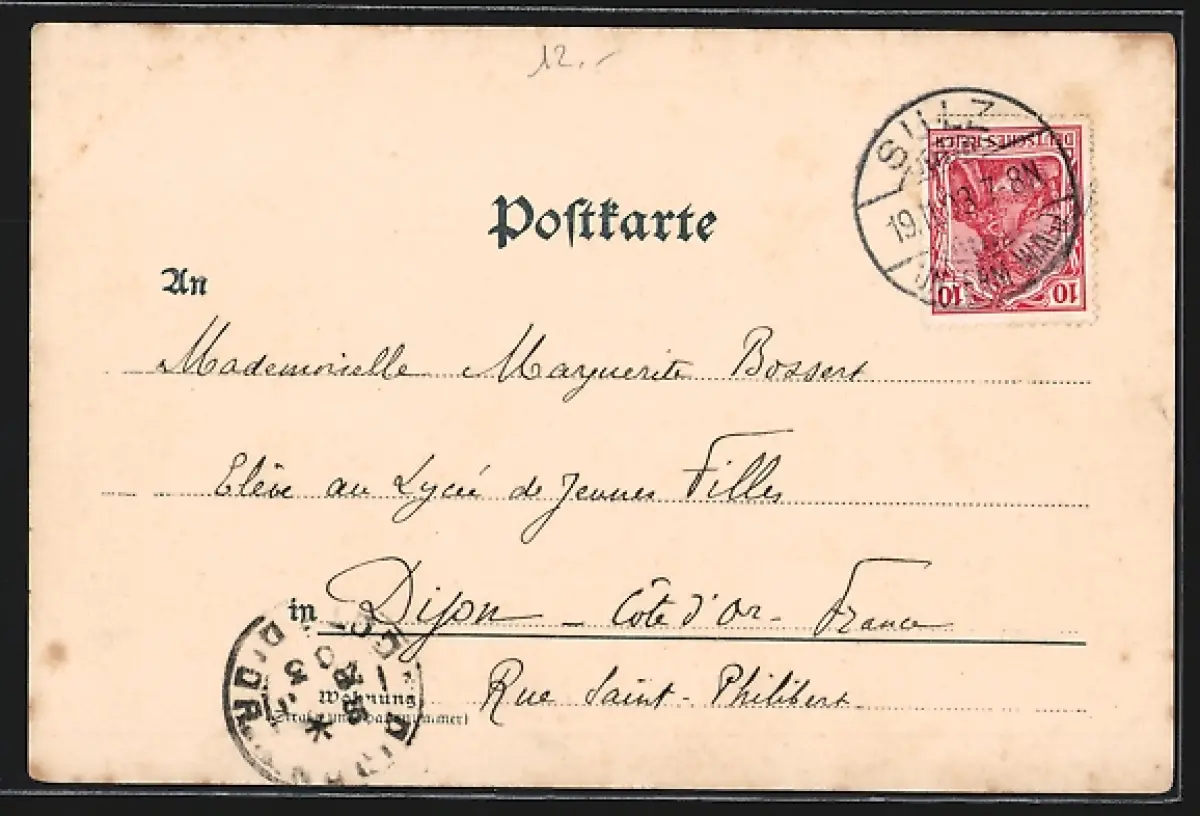 12.-
SULZ
19. 03. 7-8N
DEUTSCHES REICH
10 10
Postkarte
An
Mademoiselle Marguerite Bossert
Elève au Lycée de Jeunes Filles
in Dijon - Côte d'Or - France
Wohnung Rue Saint-Philibert
(Straße und Hausnummer)
DIJON
COTE D'OR